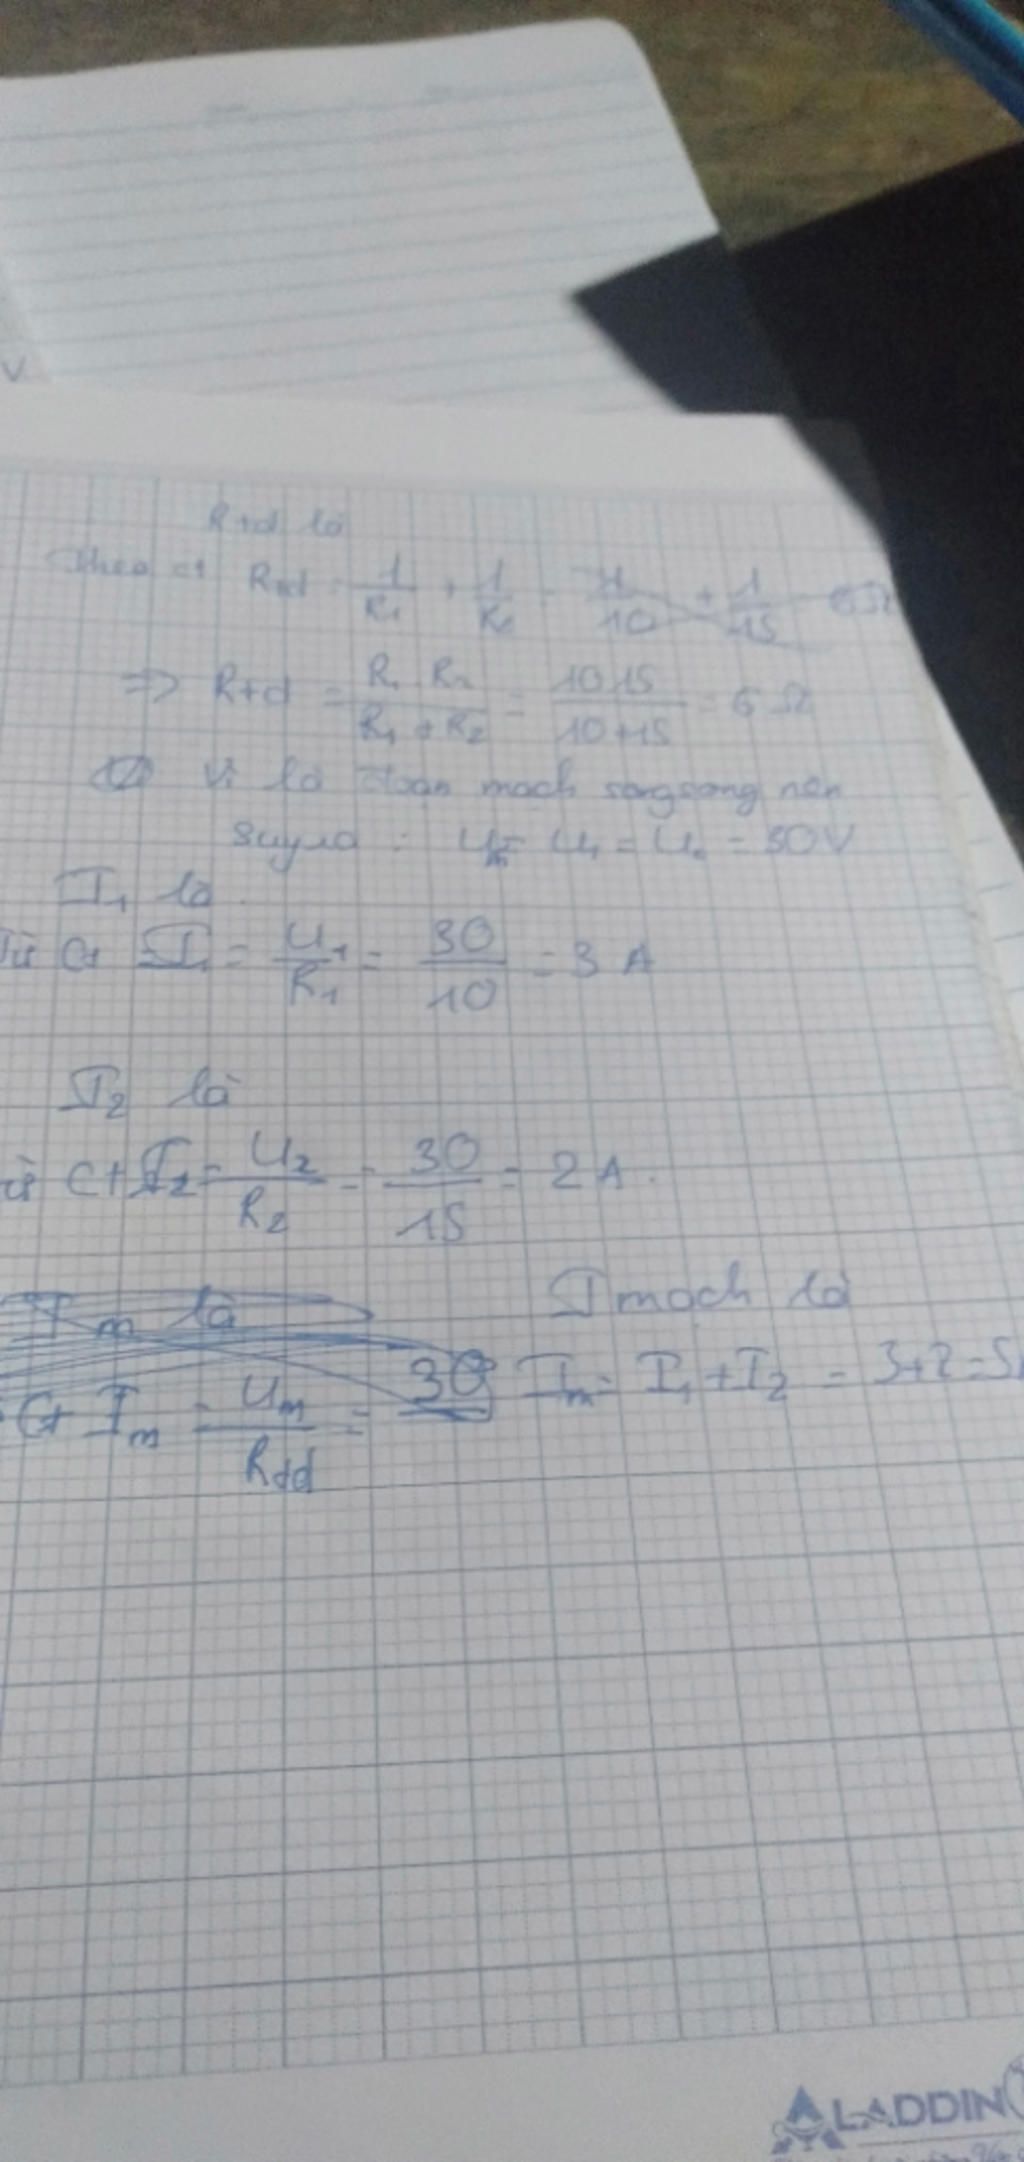 V
Rtd là
theo ct Rtd = 1/R1 + 1/R2 = 1/10 + 1/15
=> Rtd = R1 R2/R1 + R2 = 10.15/10+15 = 6 Ω
Vì là đoạn mạch songsong nên
suyra : Um = U1 = U2 = 30V
I1 là
Từ Ct I1 = U1/R1 = 30/10 = 3 A
I2 là
từ Ct I2 = U2/R2 = 30/15 = 2 A.
Im là
Ct Im = Um/Rtd = 30
I mạch là
Im = I1 + I2 = 3+2=5A
ALADDIN